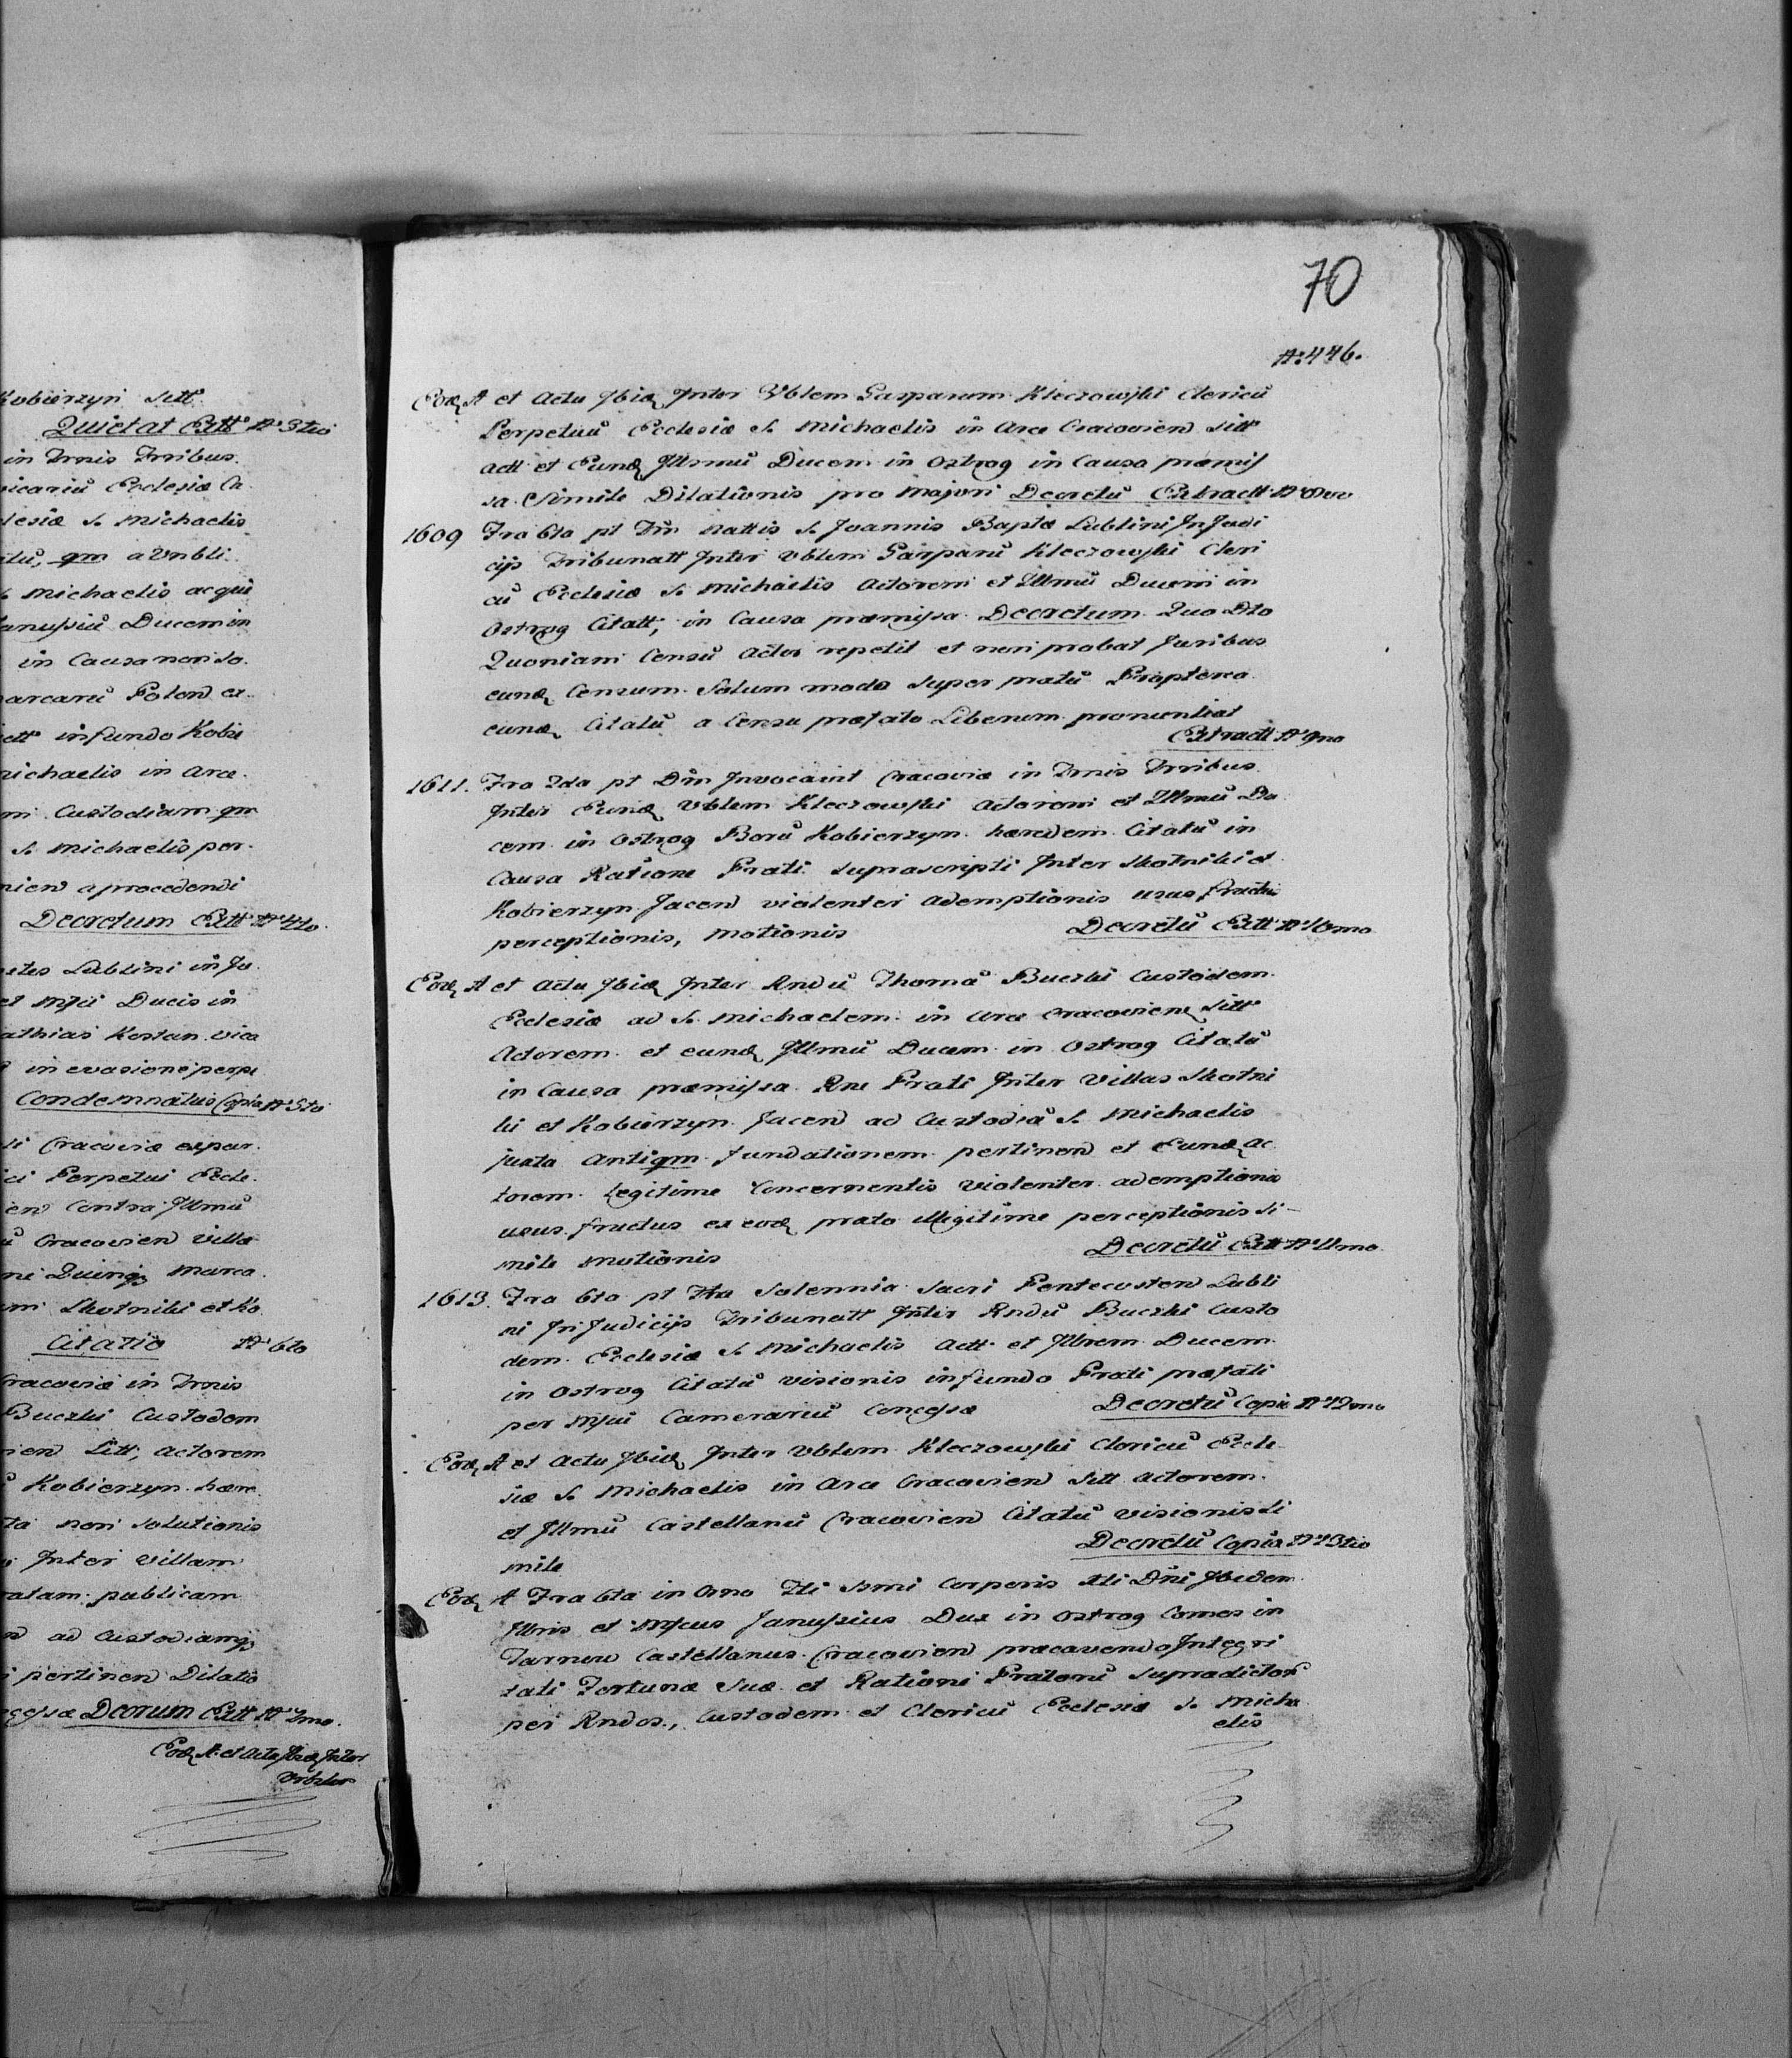 Kobierzyn sitt
Quietat Extt No 3tio
in Trnis Trribus
vicariū Ecclesiæ Ca
clesiæ S. Michaelis
qm a Vnbli
S. Michaelis acqui
anussiū Ducem in
in Causa non so
marcarū Polon ex
infundo Kobie
Michaelis in Arce
Custodiam qm
S. Michaelis per
a procedendi
Decretum Extt No 4to
Lublini in Ju
et Mfci Ducis in
athias Kostan vica
in evasione perpe
Condemnatus Copia No 5to
Cracoviæ expar
ici Perpetui Eccle
en Contra Jllmū
Cracovien Villa
Quinq Marca
Skotniki et Ko
Citatio No 6to
Cracoviæ in Trnis
Buczki Custodem
Sitt, Actorem
Kobierzyn hære
non solutionis
Inter Villam
ratam publicam
ad Custodiamq
pertinen Dilatio
Decrum Extt No 7mo
Eod A et Actu Ibid Inter
Vnblem
70
No 446.
Eod A et Actu Ibid Inter Vblem Gasparum Kleczowski Clericū
Perpetuū Ecclesiæ S. Michaelis in Arce Cracovien sitt
Actt et Eund Jllrmū Ducem in Ostrog in Causa præmis
sa Simile Dilationis pro Majori Decretū Extractt No 8vo
1609 Fra 6ta pt Fm Nattis S. Joannis Baptæ Lublini In Judi
cijs Tribunatt Inter Vblem Gasparū Kleczowski Cleri
cū Ecclesiæ S. Michaelis Actorem et Illmū Ducem in
Ostrog Citatt, in Causa præmissa Decretum Quo Dto
Quoniam Censū Actor repetit et non probat Juribus
eund Censum Solum modo super pratū Propterea
eund Citatū a Censu præfato Liberum pronuntiat
Extractt No 9no
1611. Fra 2da pt Dm Invocavit Cracoviæ in Trnis Trribus
Inter Eund Vblem Kleczowski Actorem et Illmū Du
cem in Ostrog Borū Kobierzyn hæredem Citatū in
Causa Ratione Prati suprascripti Inter Skotniki et
Kobierzyn Jacen violenter ademptionis usus fructus
perceptionis, Motionis Decretū Extt No 10mo
Eod A et Actu Ibid Inter Rndū Thomā Buczki Custodem
Ecclesiæ ad S. Michaelem in Arce Cracovien Sitt
Actorem et eund Jllmū Ducem in Ostrog Citatū
in Causa præmissa Rne Prati Inter Villas Skotni
ki et Kobierzyn Jacen ad Custodiā S. Michaelis
juxta Antiqm fundationem pertinen et Eund ac
torem Legitime Concernentis violenter ademptionis
usus fructus ex eod prato illegitime perceptionis Si-
mile Motionis Decretū Extt No 11mo
1613. Fra 6ta pt Fta Solennia Sacri Pentecosten Lubli
ni In Judicijs Tribunatt Inter Rndū Buczki Custo
dem Ecclesiæ S. Michaelis Actt et Jllrem Ducem
in Ostrog Citatū visionis in fundo Prati præfati
per Mfcū Camerariū Concessæ Decretū Copia No 12mo
Eod A et Actu Ibid Inter Vblem Kleczowski Clericū Eccle
siæ S. Michaelis in Arce Cracovien Sitt Actorem
et Jllmū Castellanū Cracovien Citatū visionis Si
mile Decretū Copia No 13tio
Eod A Fra 6ta in Crno Fti Ssmi Corporis Xti Dni Ibidem
Jllris et Mfcus Janussius Dux in Ostrog Comes in
Tarnow Castellanus Cracovien præcavendo Integri
tati Fortunæ Suæ et Rationi Pratorū supradictor
per Rndos, Custodem et Clericū Ecclesiæ S. Micha
elis